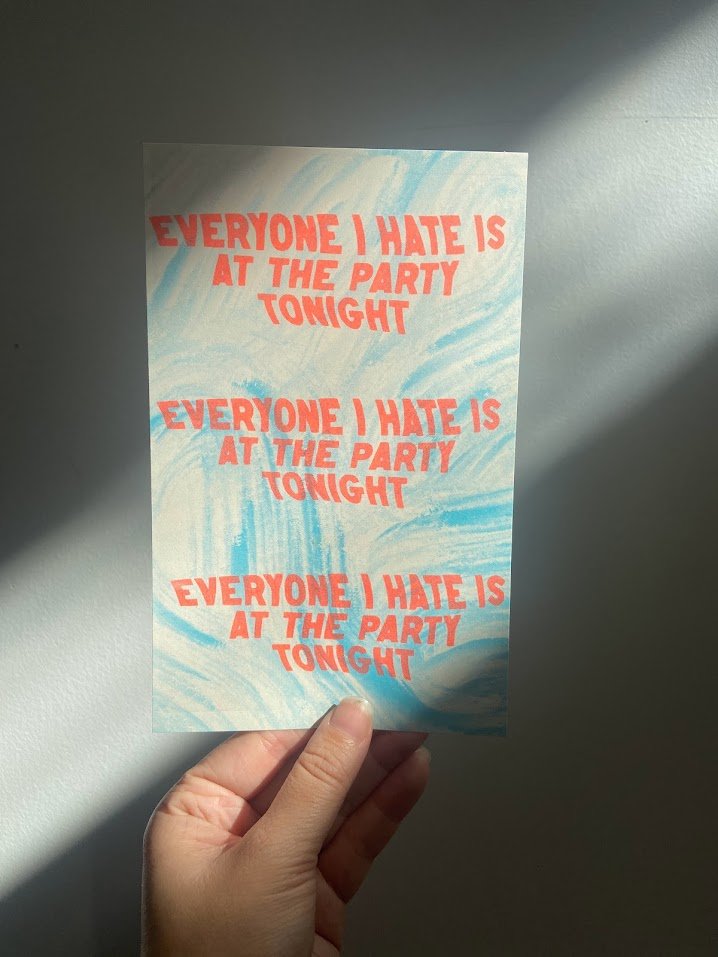 EVERYONE I HATE IS
AT THE PARTY
TONIGHT
EVERYONE I HATE IS
AT THE PARTY
TONIGHT
EVERYONE I HATE IS
AT THE PARTY
TONIGHT